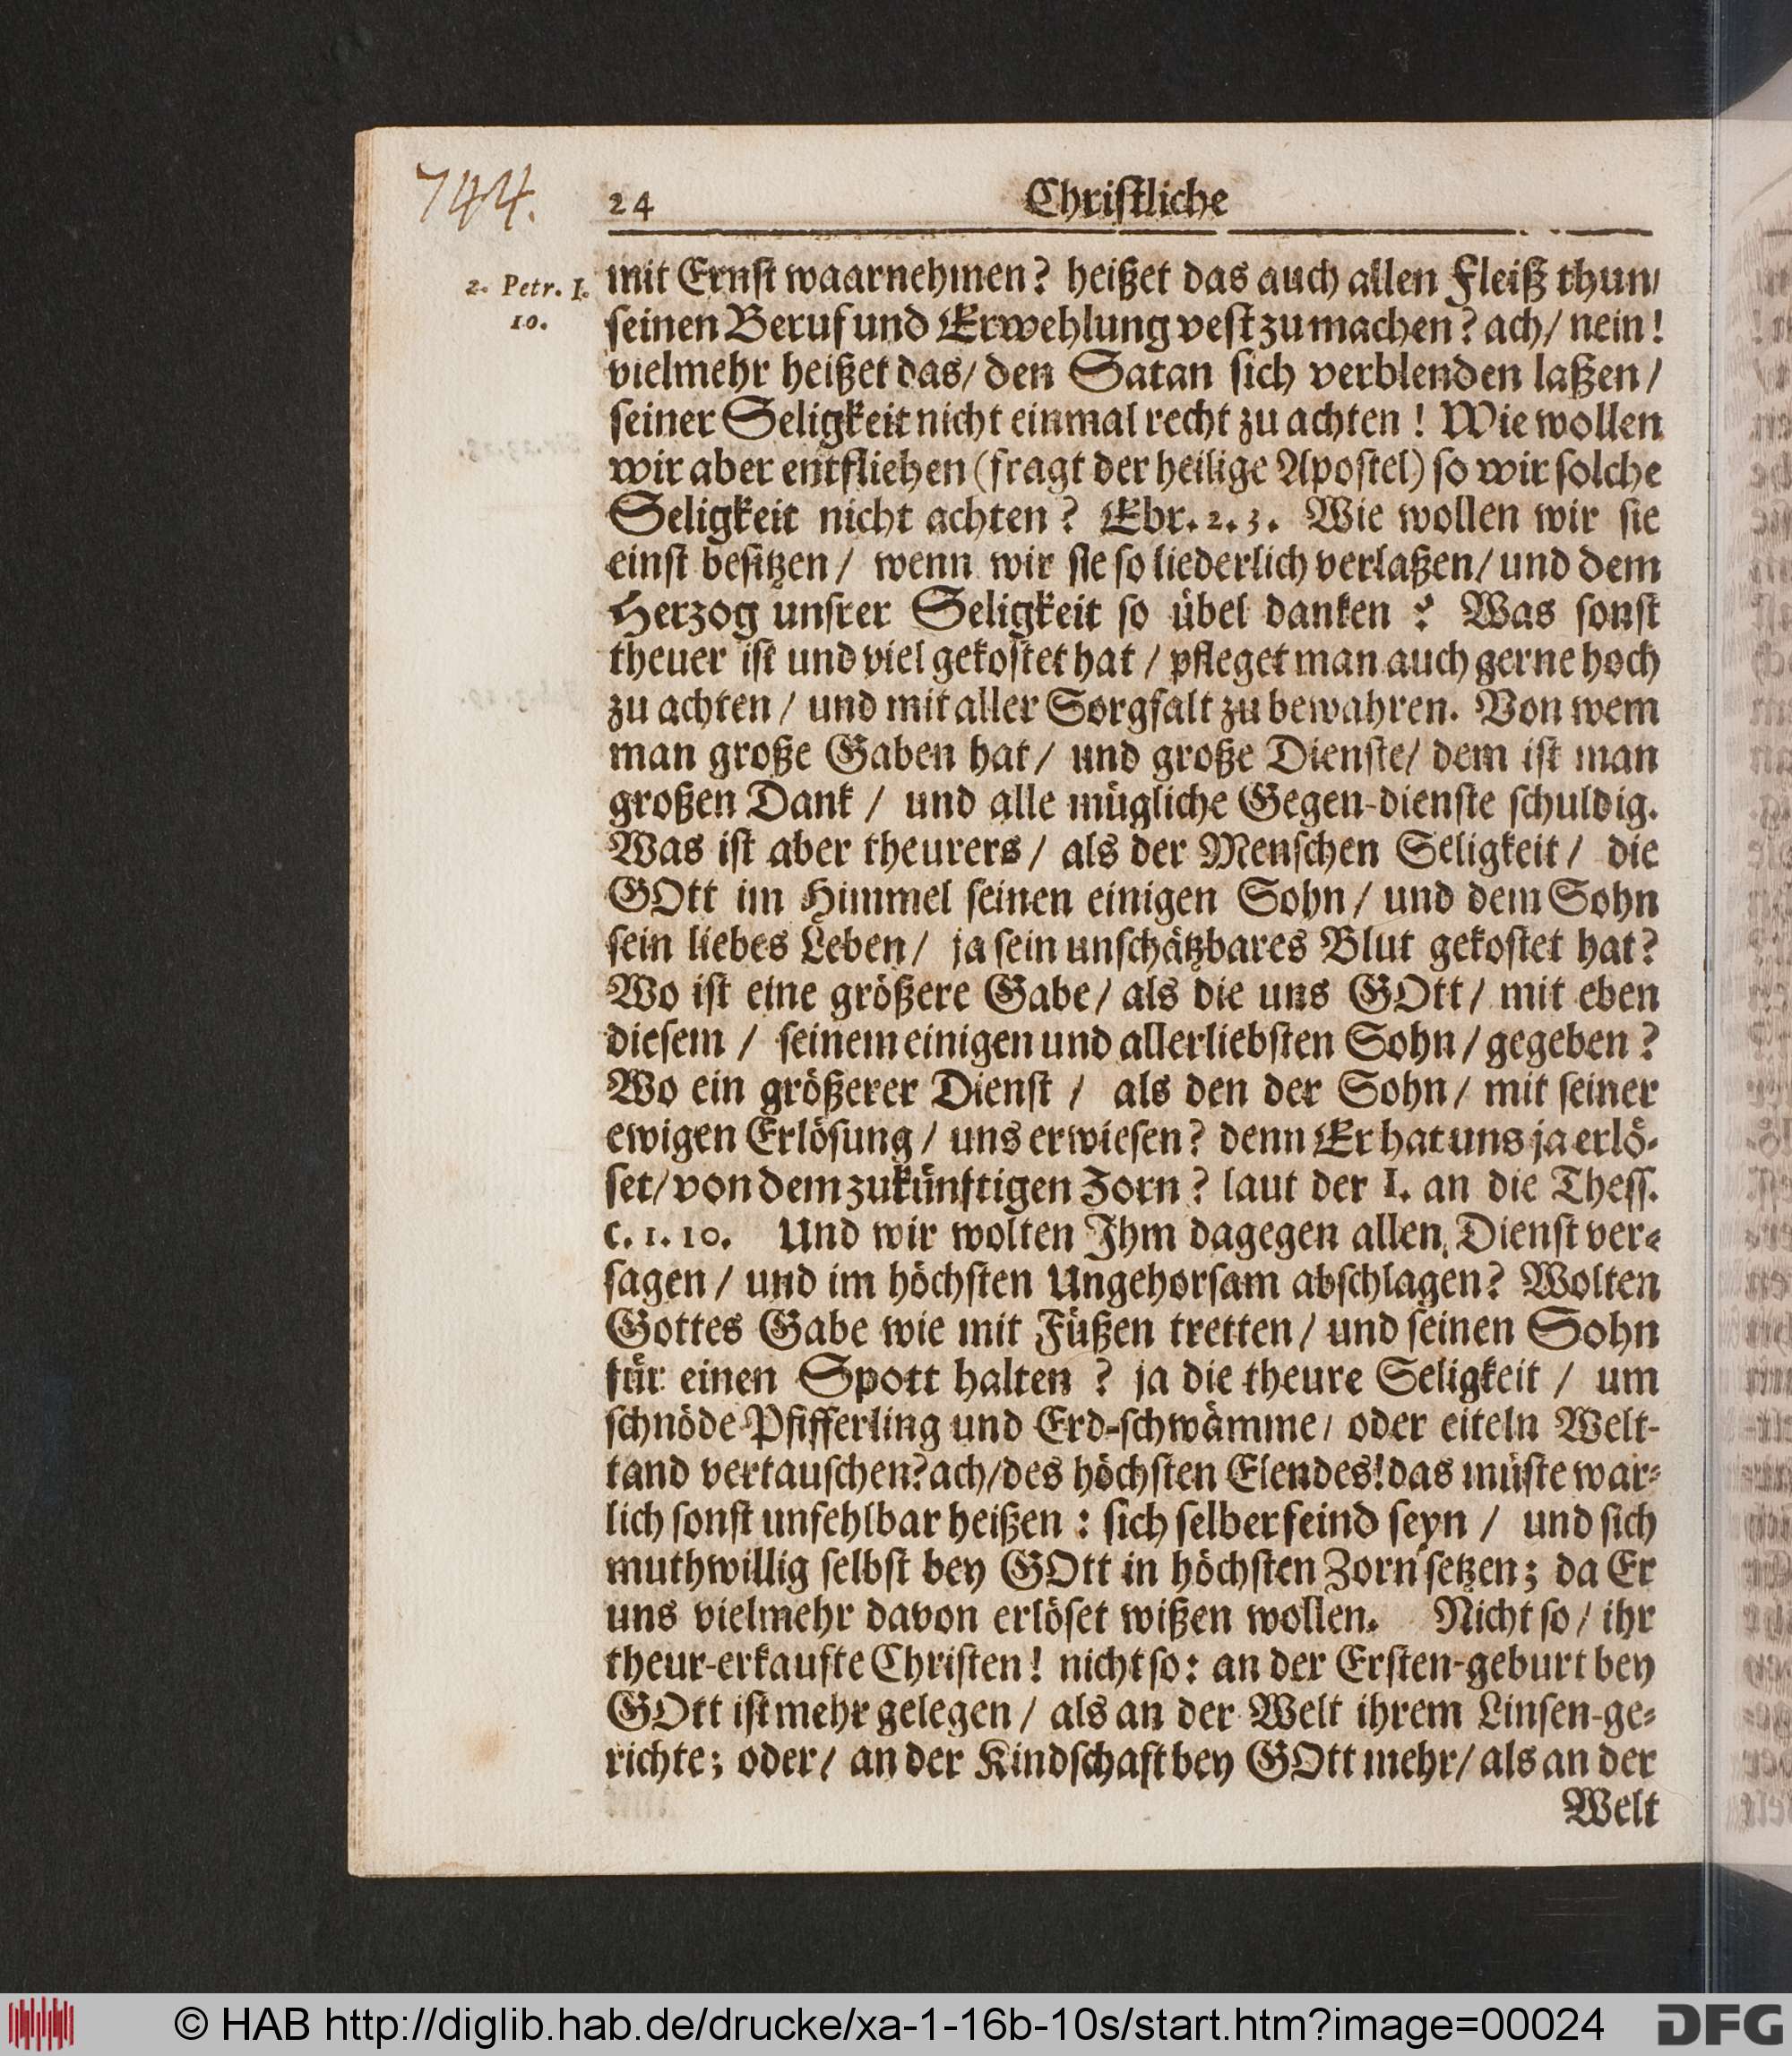 744.
24 Chriſtliche
2. Petr. I.
10.
mit Ernſt waarnehmen? heißet das auch allen Fleiß thun/
ſeinen Beruf und Erwehlung veſt zu machen? ach/ nein!
vielmehr heißet das/ den Satan ſich verblenden laßen/
ſeiner Seligkeit nicht einmal recht zu achten! Wie wollen
wir aber entfliehen (fragt der heilige Apoſtel) ſo wir ſolche
Seligkeit nicht achten? Ebr. 2. 3. Wie wollen wir ſie
einſt beſitzen/ wenn wir ſie ſo liederlich verlaßen/ und dem
Herzog unſrer Seligkeit ſo uͤbel danken? Was ſonſt
theuer iſt und viel gekoſtet hat/ pfleget man auch gerne hoch
zu achten/ und mit aller Sorgfalt zu bewahren. Von wem
man große Gaben hat/ und große Dienſte/ dem iſt man
großen Dank/ und alle muͤgliche Gegen-dienſte ſchuldig.
Was iſt aber theurers/ als der Menſchen Seligkeit/ die
GOtt im Himmel ſeinen einigen Sohn/ und dem Sohn
ſein liebes Leben/ ja ſein unſchaͤtzbares Blut gekoſtet hat?
Wo iſt eine groͤßere Gabe/ als die uns GOtt/ mit eben
dieſem/ ſeinem einigen und allerliebſten Sohn/ gegeben?
Wo ein groͤßerer Dienſt/ als den der Sohn/ mit ſeiner
ewigen Erloͤſung/ uns erwieſen? denn Er hat uns ja erloͤ-
ſet/ von dem zukuͤnftigen Zorn? laut der I. an die Theſſ.
c. 1. 10. Und wir wolten Ihm dagegen allen Dienſt ver-
ſagen/ und im hoͤchſten Ungehorſam abſchlagen? Wolten
Gottes Gabe wie mit Fuͤßen tretten/ und ſeinen Sohn
fuͤr einen Spott halten? ja die theure Seligkeit/ um
ſchnoͤde Pfifferling und Erd-ſchwaͤmme/ oder eiteln Welt-
tand vertauſchen? ach/ des hoͤchſten Elendes! das muͤſte war-
lich ſonſt unfehlbar heißen: ſich ſelber feind ſeyn/ und ſich
muthwillig ſelbſt bey GOtt in hoͤchſten Zorn ſetzen; da Er
uns vielmehr davon erloͤſet wißen wollen. Nicht ſo/ ihr
theur-erkaufte Chriſten! nicht ſo: an der Erſten-geburt bey
GOtt iſt mehr gelegen/ als an der Welt ihrem Linſen-ge-
richte; oder/ an der Kindſchaft bey GOtt mehr/ als an der
Welt
© HAB http://diglib.hab.de/drucke/xa-1-16b-10s/start.htm?image=00024
DFG